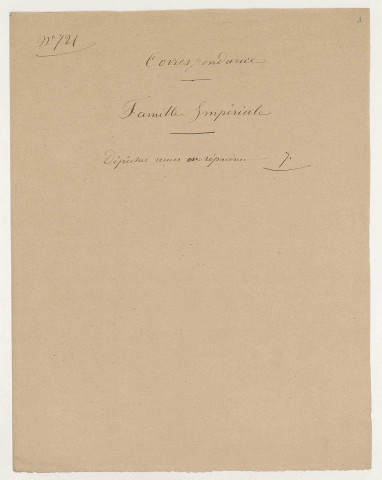 N° 721
Correspondance
Famille Impériale
Dépêches reçues en réponse 7.